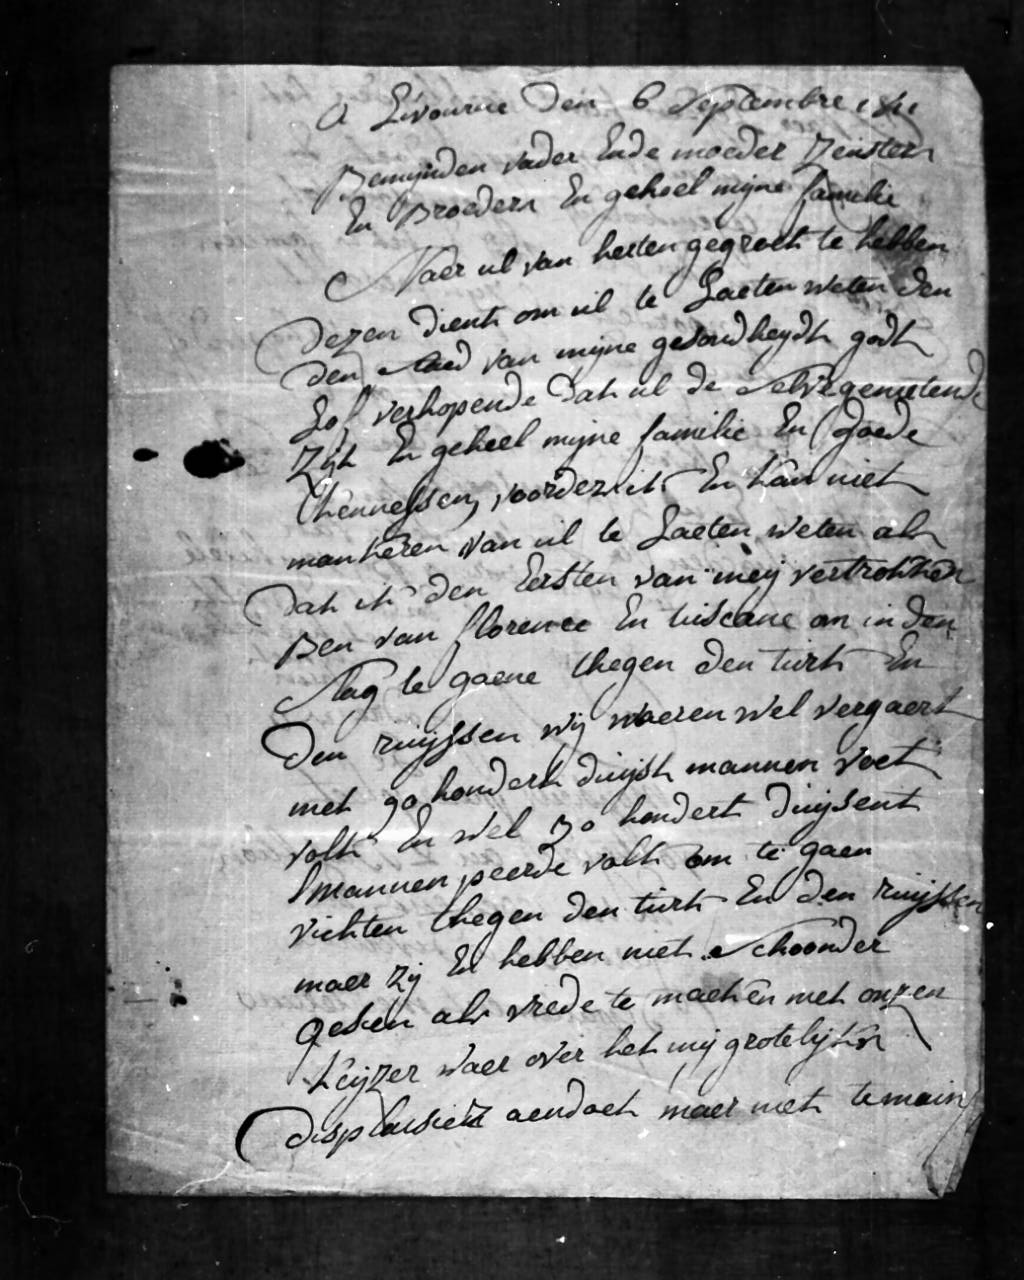 A Livourne Den 6 Septembre 1811
Bemijnden vader Ende moeder Zeusters
En Broeders En geheel mijne familie
Naer ul van herten gegroet te hebben
Dezen dient om ul te Laeten weten den
den staed van mijne gesondheydt godt
Lof verhopende dat ul de selve genietende
Zijt En geheel mijne familie En goede
Chennessen, voorders ik En kan niet
mankeren van ul te Laeten weten als
Dat ik den Eersten van meij vertrokken
Ben van florence En tuscane om in den
slag te gaene thegen den turk En
Den ruijssen wij waeren wel vergaert
met 90 hondert duijst mannen voet
volk En wel 30 hondert duijsent
mannen peerde volk om te gaen
vichten thegen den turk En den ruijssen
maer zij En hebben niet schoonder
gesien als vrede te maeken met onzen
keijzer waer over het mij grotelijks
displaisier aendoet maer niet temain